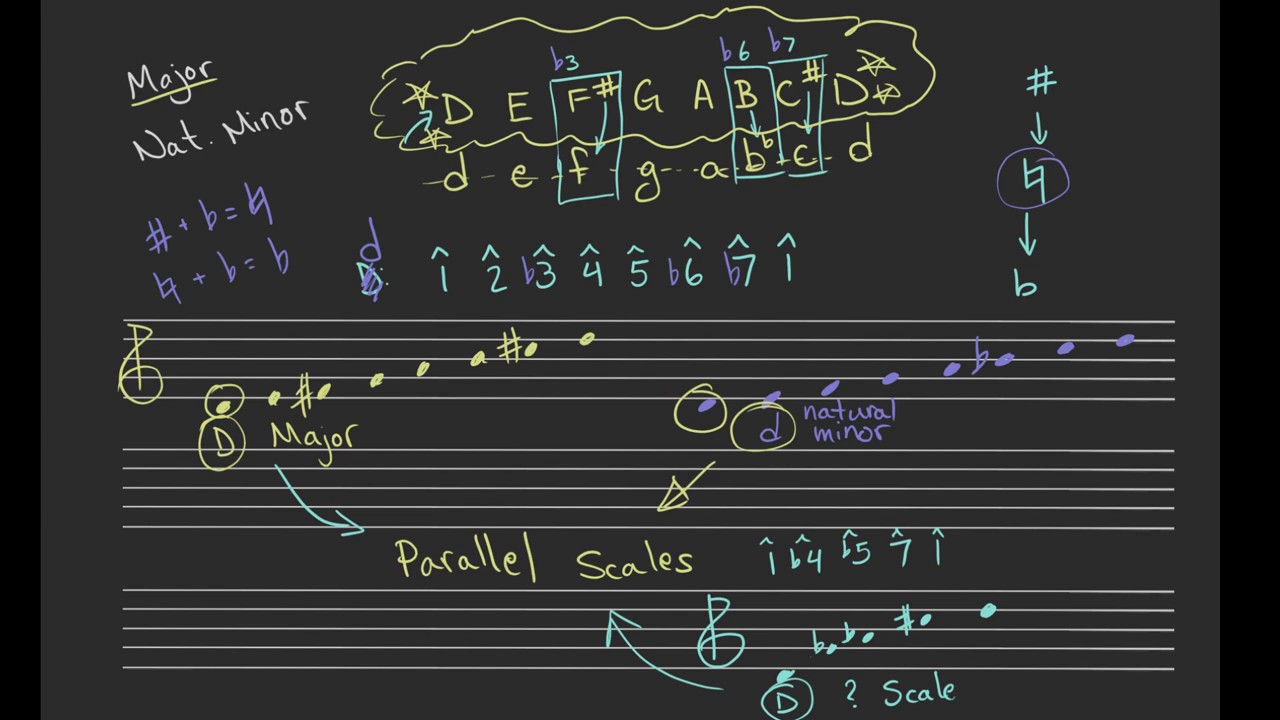 Major
Nat. Minor
b3 b6 b7
D E F# G A B C# D
d e f g a bb c d
# + b = ♮
♮ + b = b
#
♮
b
d
D: 1̂ 2̂ b3̂ 4̂ 5̂ b6̂ b7̂ 1̂
# # b
D Major
d natural minor
Parallel Scales 1̂ b4̂ b5̂ 7̂ 1̂
b b #
D ? Scale